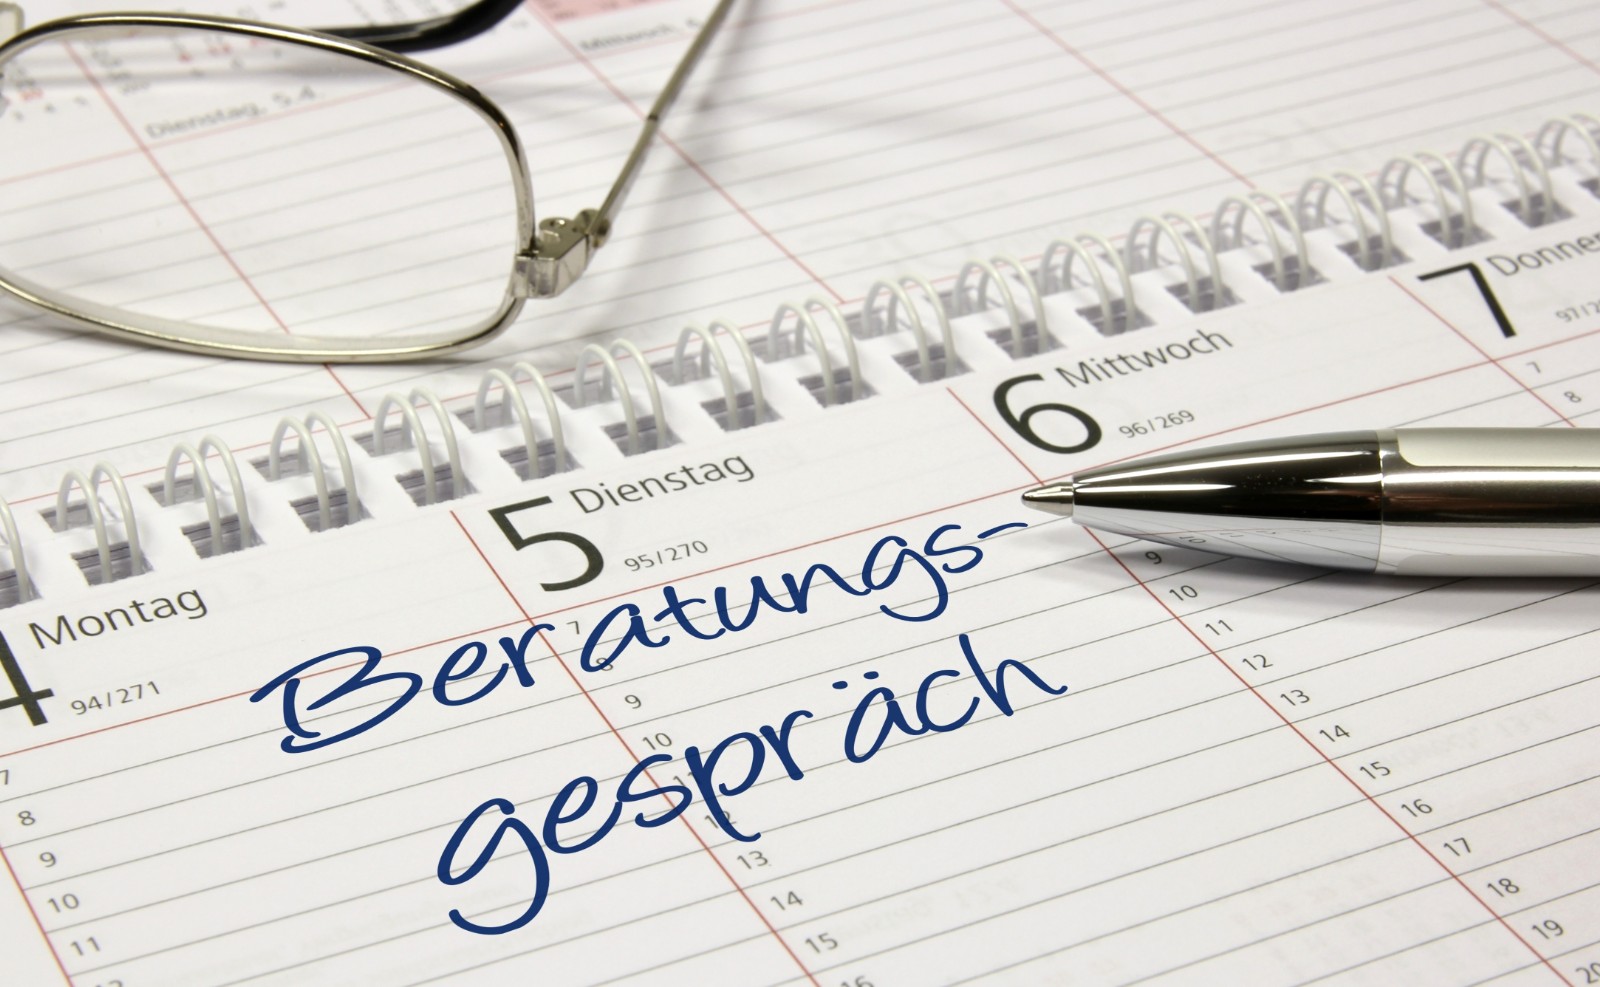 Mittwoch, 6.4.
Dienstag, 5.4.
7 Donner
97/2
6 Mittwoch
96/269
5 Dienstag
95/270
4 Montag
94/271
Beratungs-
gespräch
7
8
9
10
11
7
8
9
10
11
12
13
14
15
16
9
10
11
12
13
14
15
16
17
18
19
20
7
8